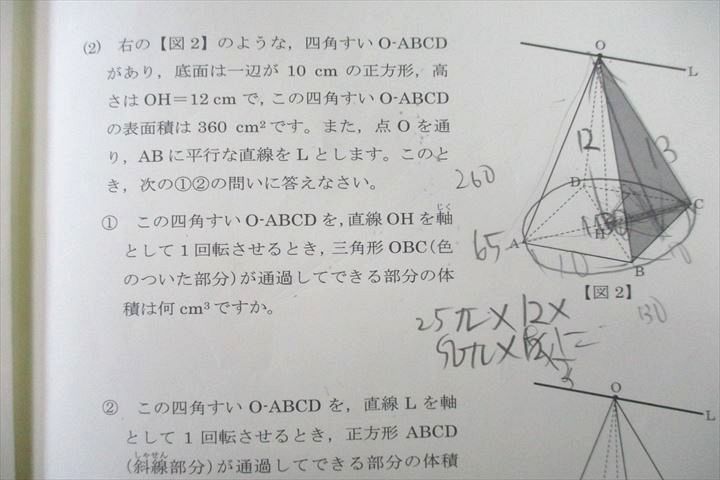 (2) 右の【図2】のような，四角すい O-ABCD
があり，底面は一辺が 10 cm の正方形，高
さは OH＝12 cm で，この四角すい O-ABCD
の表面積は 360 cm²です。また，点 O を通
り，AB に平行な直線を L とします。このと
き，次の①②の問いに答えなさい。
① この四角すい O-ABCD を，直線 OH を軸
じく
として 1 回転させるとき，三角形 OBC（色
のついた部分）が通過してできる部分の体
積は何 cm³ですか。
② この四角すい O-ABCD を，直線 L を軸
として 1 回転させるとき，正方形 ABCD
しゃせん
（斜線部分）が通過してできる部分の体積
O
L
12
13
D
C
H
A
B
10
10
【図2】
260
65
130
25π×12×
50π×12×1/3=
O
L